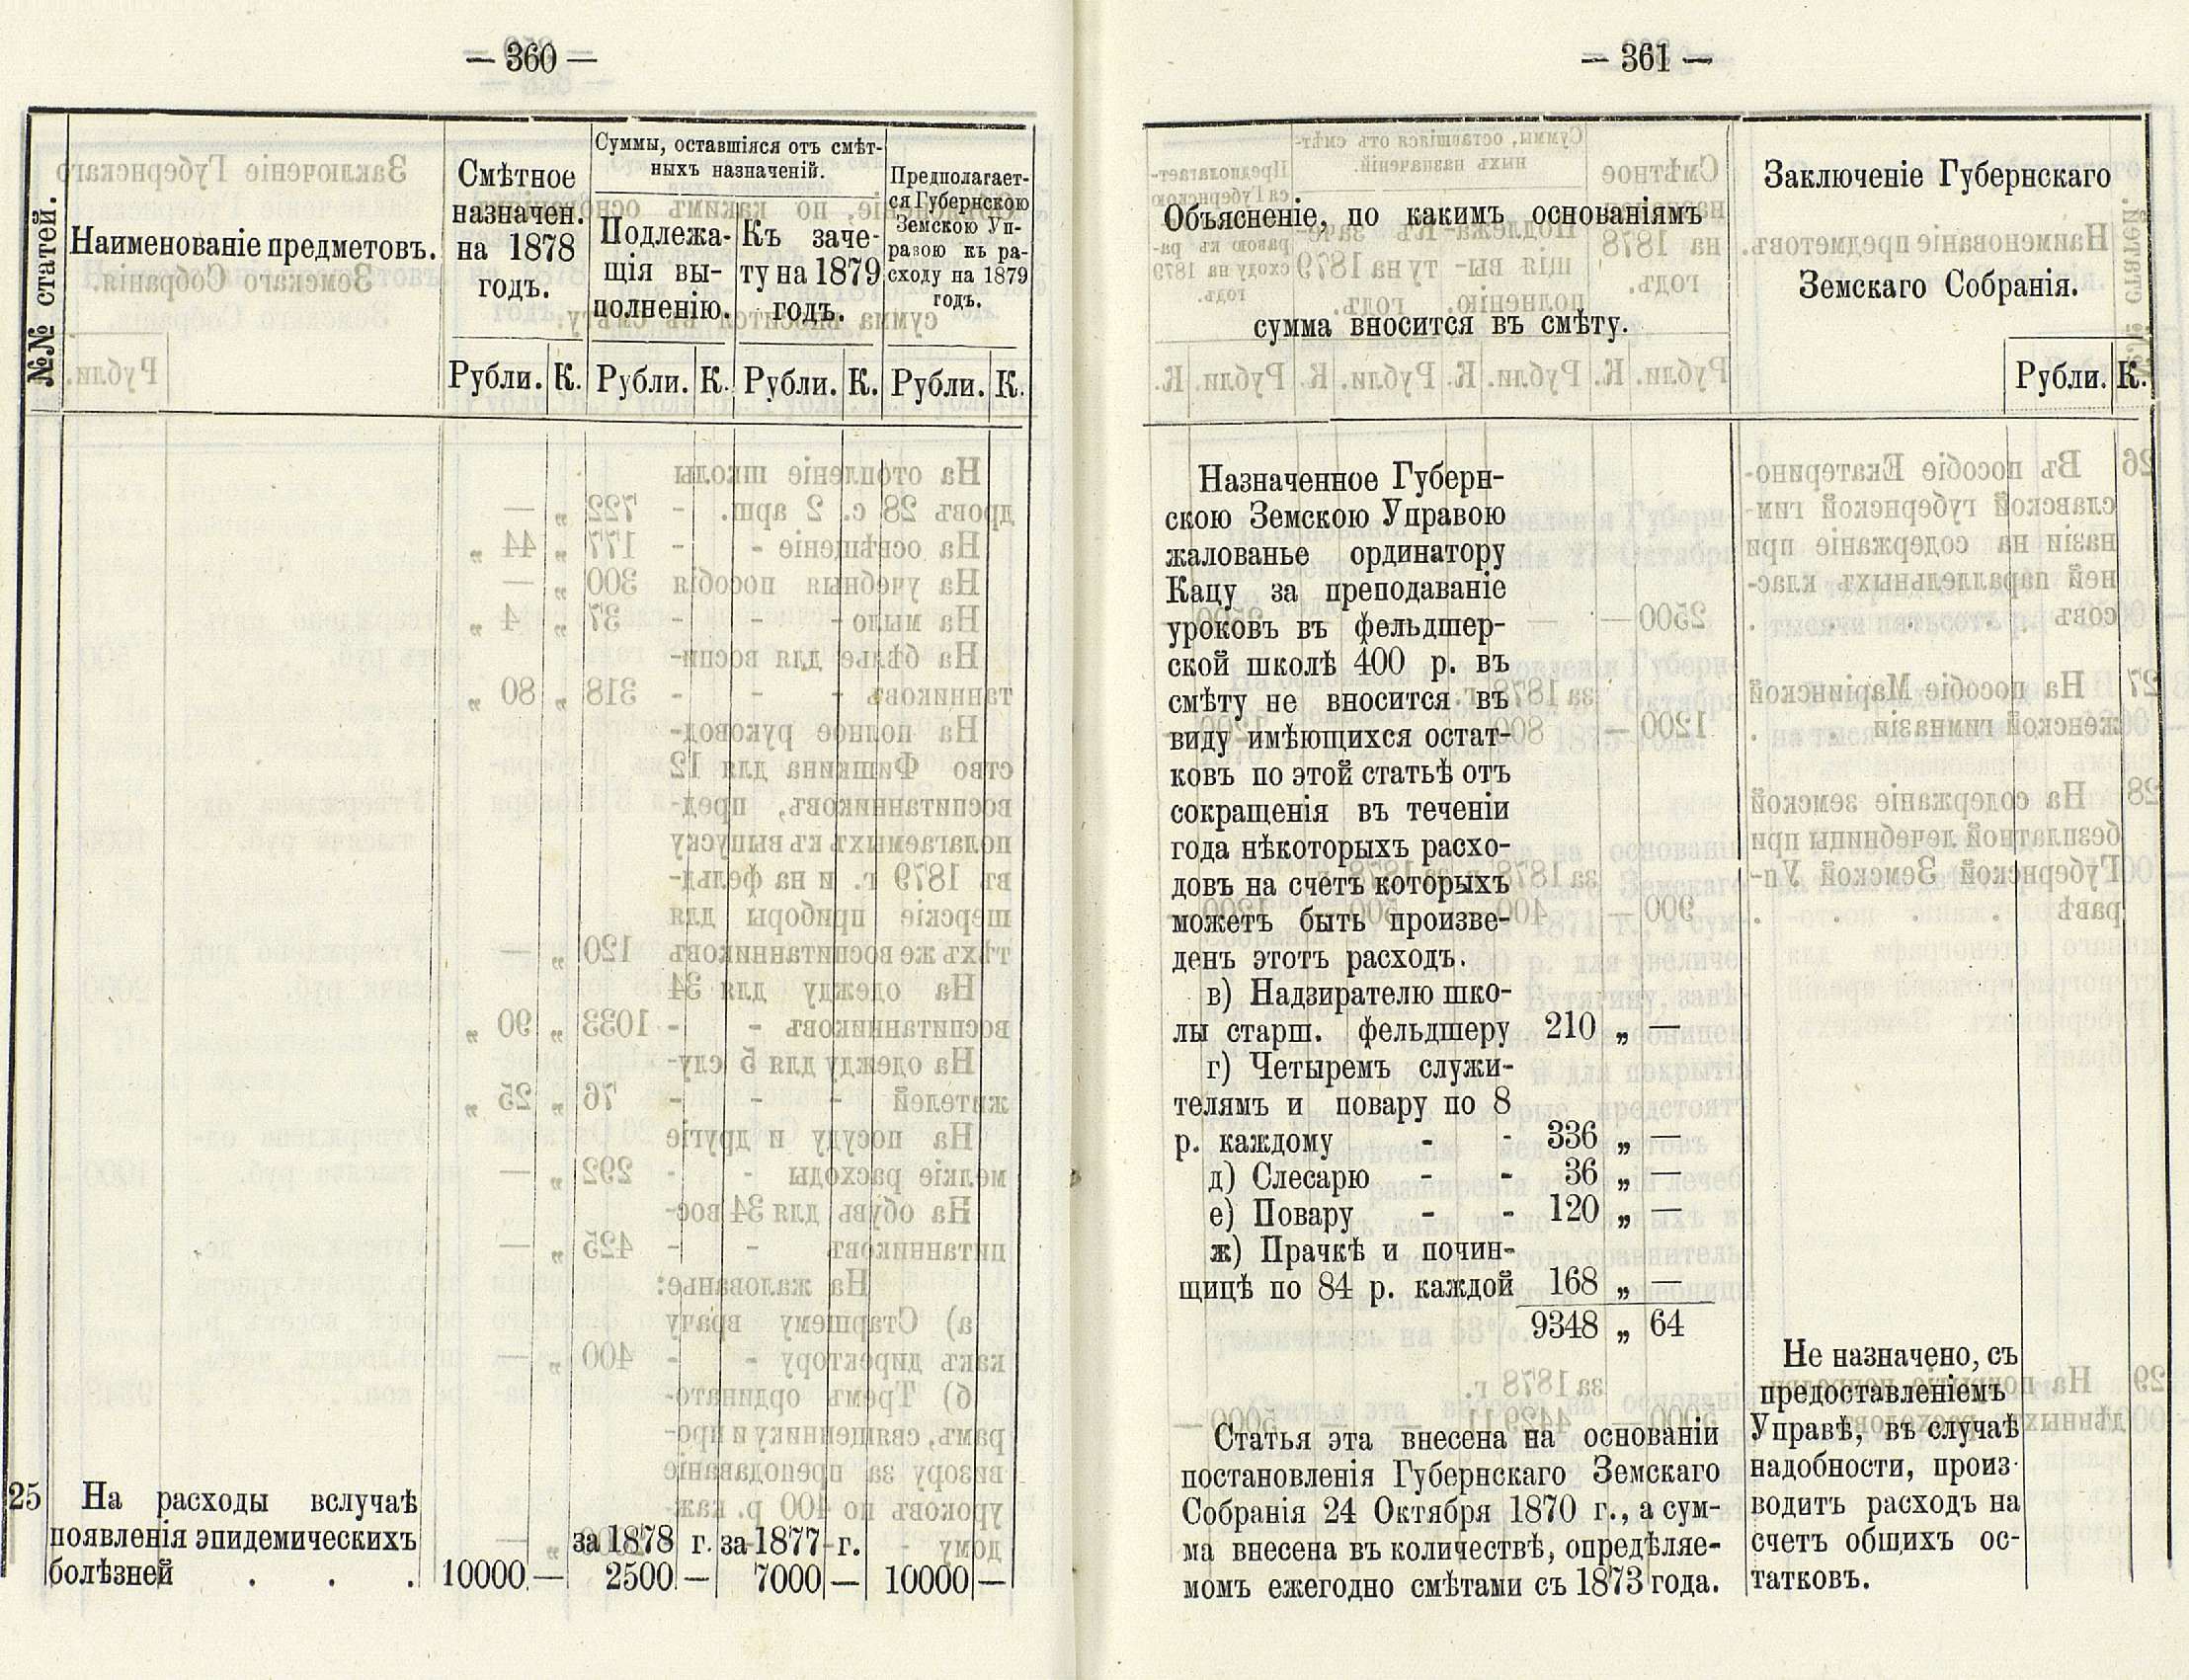 — 360 —
№№ статей.
Наименованіе предметовъ.
Смѣтное
назначен.
на 1878
годъ.
Суммы, оставшіяся отъ смѣт-
ныхъ назначеній.
Подлежа-
щія вы-
полненію.
Къ заче-
ту на 1879
годъ.
Предполагает-
ся Губернскою
Земскою Уп-
равою къ ра-
сходу на 1879
годъ.
Рубли. К. Рубли. К. Рубли. К. Рубли. К.
25 На расходы вслучаѣ
появленія эпидемическихъ
болѣзней . . .
за 1878 г. за 1877 г.
10000 — 2500 — 7000 — 10000 —
— 361 —
Объясненіе, по какимъ основаніямъ
сумма вносится въ смѣту.
Заключеніе Губернскаго
Земскаго Собранія.
Рубли. К.
Назначенное Губерн-
скою Земскою Управою
жалованье ординатору
Кацу за преподаваніе
уроковъ въ фельдшер-
ской школѣ 400 р. въ
смѣту не вносится въ
виду имѣющихся остат-
ковъ по этой статьѣ отъ
сокращенія въ теченіи
года нѣкоторыхъ расхо-
довъ на счетъ которыхъ
можетъ быть произве-
денъ этотъ расходъ.
в) Надзирателю шко-
лы старш. фельдшеру 210 „ —
г) Четыремъ служи-
телямъ и повару по 8
р. каждому - - 336 „ —
д) Слесарю - - 36 „ —
е) Повару - - 120 „ —
ж) Прачкѣ и почин-
щицѣ по 84 р. каждой 168 „ —
9348 „ 64
Статья эта внесена на основаніи
постановленія Губернскаго Земскаго
Собранія 24 Октября 1870 г., а сум-
ма внесена въ количествѣ, опредѣляе-
момъ ежегодно смѣтами съ 1873 года.
Не назначено, съ
предоставленіемъ
Управѣ, въ случаѣ
надобности, произ-
водить расходъ на
счетъ общихъ ос-
татковъ.